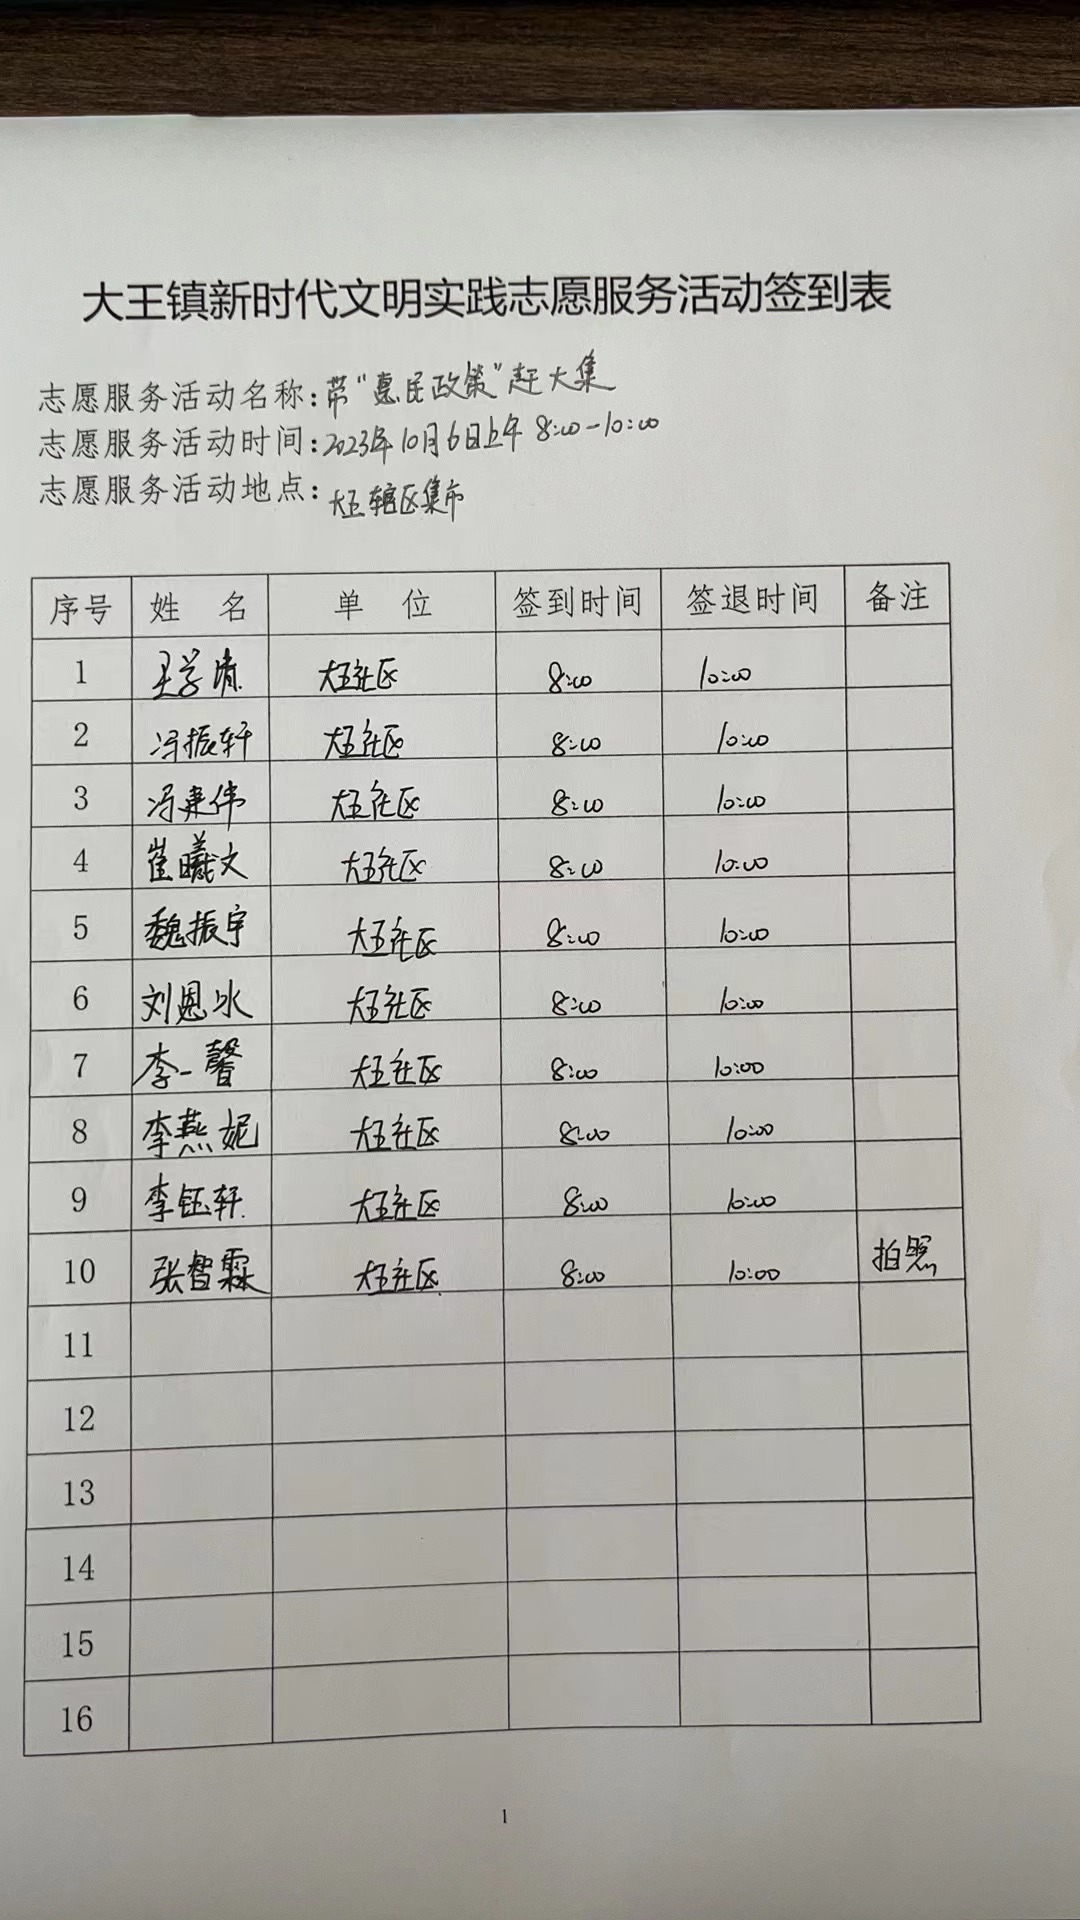 大王镇新时代文明实践志愿服务活动签到表
志愿服务活动名称:带“惠民政策”赶大集
志愿服务活动时间:2023年10月6日上午 8:00-10:00
志愿服务活动地点:大王辖区集市
序号 姓 名 单 位 签到时间 签退时间 备注
1 王学清 大王社区 8:00 10:00
2 冯振轩 大王社区 8:00 10:00
3 冯建伟 大王社区 8:00 10:00
4 崔曦文 大王社区 8:00 10:00
5 魏振宇 大王社区 8:00 10:00
6 刘恩冰 大王社区 8:00 10:00
7 李一馨 大王社区 8:00 10:00
8 李燕妮 大王社区 8:00 10:00
9 李钰轩 大王社区 8:00 10:00
10 张智霖 大王社区 8:00 10:00 拍照
11
12
13
14
15
16
1